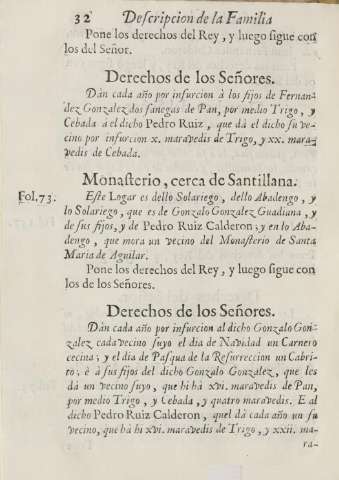 32 Deſcripcion de la Familia
Pone los derechos del Rey, y luego ſigue con
los del Señor.
Derechos de los Señores.
Dàn cada año por infurcion à los fijos de Fernan-
dez Gonzalez dos fanegas de Pan, por medio Trigo, y
Cebada à el dicho Pedro Ruiz, que dà el dicho ſu ve-
cino por infurcion x. maravedis de Trigo, y xx. mara-
vedis de Cebada.
Monaſterio, cerca de Santillana.
Fol. 73. Eſte Logar es dello Solariego, dello Abadengo, y
lo Solariego, que es de Gonzalo Gonzalez Guadiana, y
de ſus fijos, y de Pedro Ruiz Calderon; y en lo Aba-
dengo, que mora un vecino del Monaſterio de Santa
Maria de Aguilar.
Pone los derechos del Rey, y luego ſigue con
los de los Señores.
Derechos de los Señores.
Dàn cada año por infurcion al dicho Gonzalo Gon-
zalez cada vecino ſuyo el dia de Navidad un Carnero
cecina; y el dia de Paſqua de la Reſurreccion un Cabri-
to; è à ſus fijos del dicho Gonzalo Gonzalez, que les
dà un vecino ſuyo, que hi hà xvi. maravedis de Pan,
por medio Trigo, y Cebada, y quatro maravedis. E al
dicho Pedro Ruiz Calderon, quel dà cada año un ſu
vecino, que hà hi xvi. maravedis de Trigo, y xxii. ma-
ra-